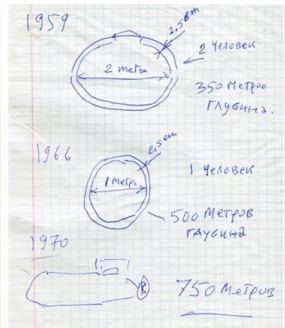 1959
2.5 cm
2 метра
2 Человек
350 Метров
Глубина.
1966
2.5 cm
1 метр
1 Человек
500 Метров
Глубина
1970
750 Метров